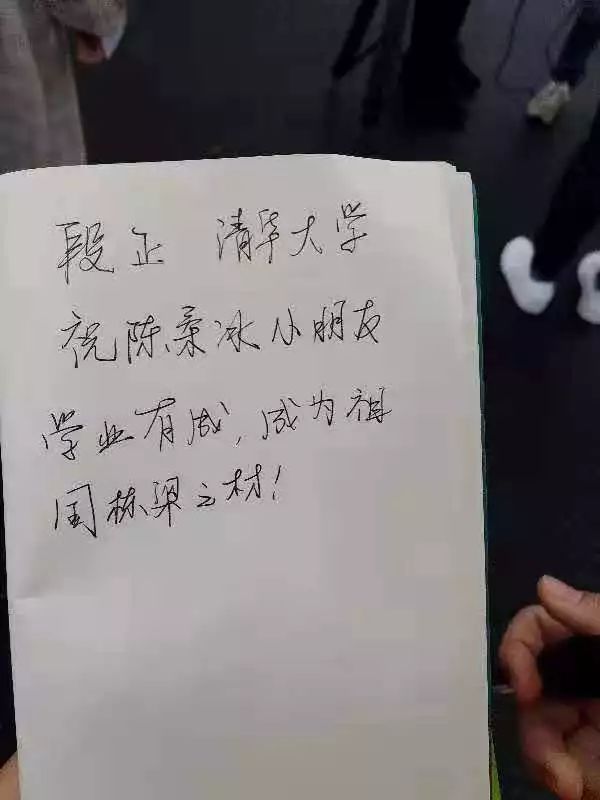 段正 清华大学
祝陈柔冰小朋友
学业有成,成为祖
国栋梁之材!